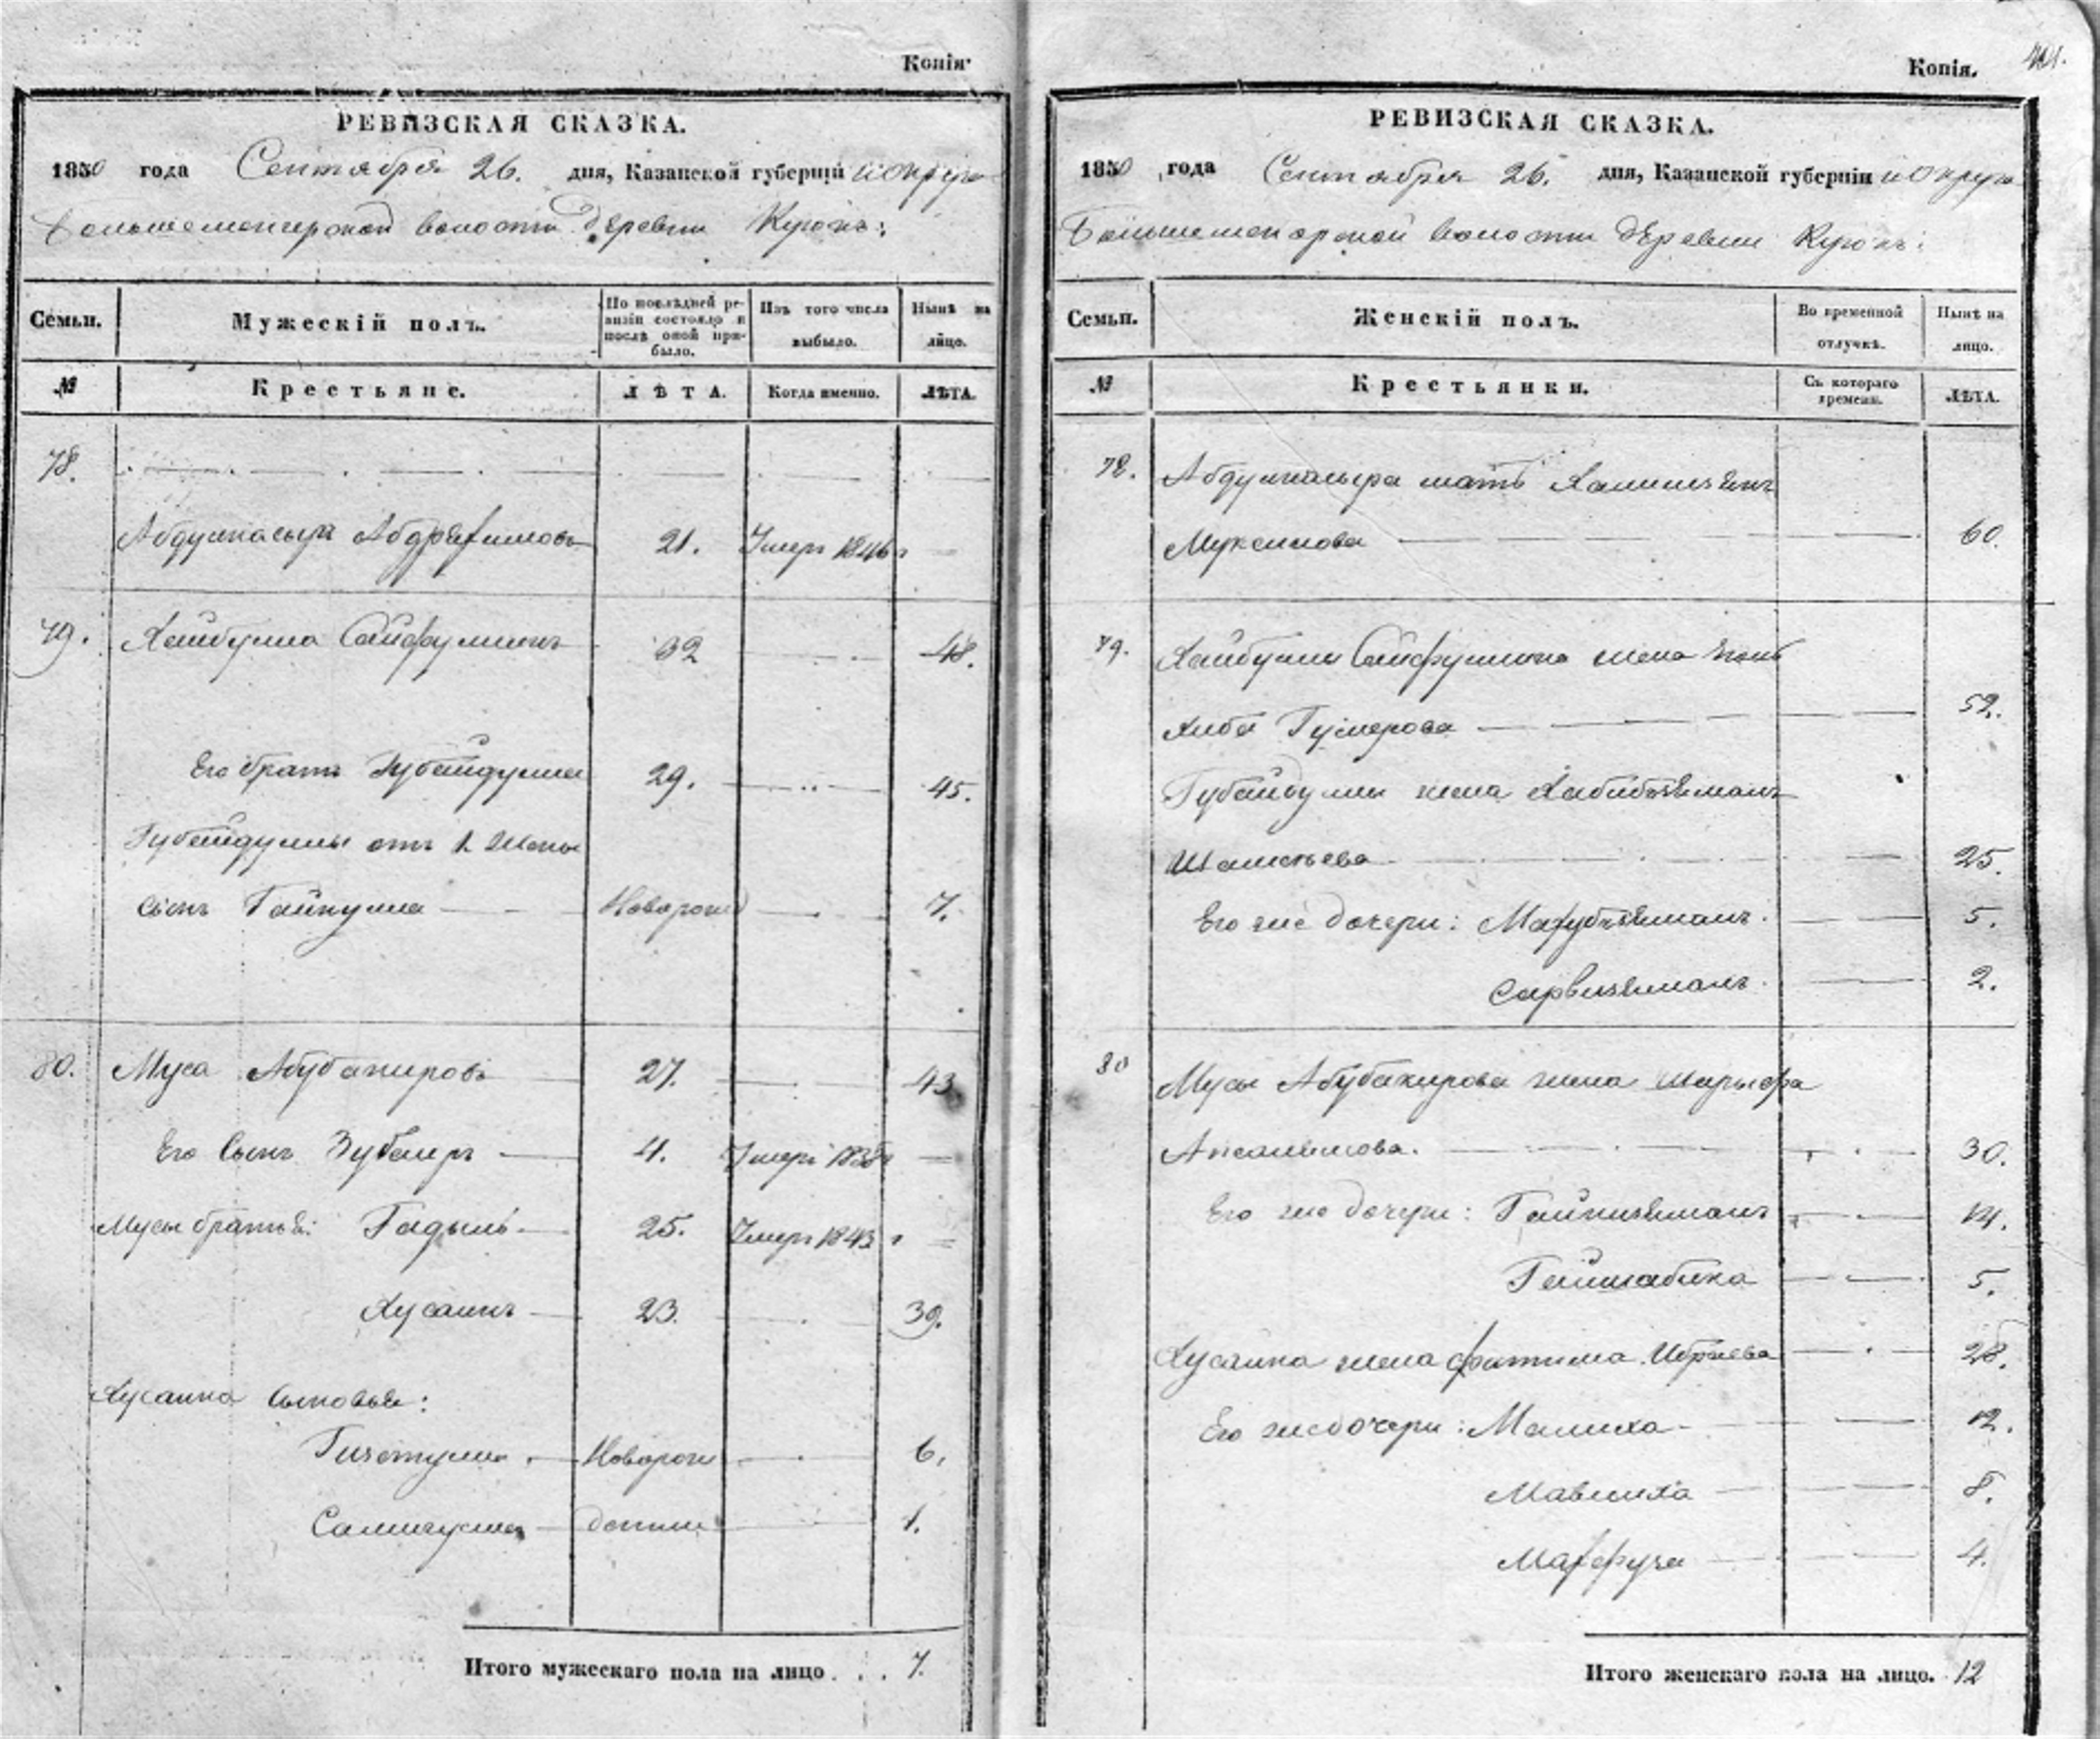 Копія
РЕВИЗСКАЯ СКАЗКА.
1850 года Сентября 26. дня, Казанской губерніи и округа
Большеменгерской волости деревни
Семьи. Мужескій полъ. По послѣдней ревизіи состояло и послѣ оной прибыло. Изъ того числа выбыло. Нынѣ на лицо.
№ Крестьяне. ЛѢТА. Когда именно. ЛѢТА.
78.
21. Умеръ 1846
79. Хайбулла Сайфуллинъ 32 48.
Его братъ Губайдулла 29. 45.
Губайдуллы отъ 1 жены
сынъ Гайнулла Новорожд 7.
80. Муса Абубакировъ 27. 43
Его сынъ Зубаиръ 4. Умеръ
Мусы братья: Гадыль 25. Умеръ 1843
Хусаинъ 23. 39.
Хусаина сыновья:
Гизетулла Новорож 6.
Салигулла денные 1.
Итого мужескаго пола на лицо . . . 7.
Копія. 401.
РЕВИЗСКАЯ СКАЗКА.
1850 года Сентября 26. дня, Казанской губерніи и округа
Большеменгерской волости деревни
Семьи. Женскій полъ. Во временной отлучкѣ. Нынѣ на лицо.
№ Крестьянки. Съ котораго времени. ЛѢТА.
78. мать
Муксинова 60.
79. Хайбуллы Сайфуллина жена
Гумерова 52.
Губайдуллы жена Хабибзяманъ
25.
Его же дочери: Махубзяманъ. 5.
Сарвизяманъ. 2.
80 Мусы Абубакирова жена Шарыфа
Апсалямова. 30.
Его же дочери: Гайнизяманъ 14.
Гайшабика 5.
Хусаина жена Фатима 28.
Его же дочери: Малиха 12.
Мавлиха 8.
Махфуза 4.
Итого женскаго пола на лицо. 12